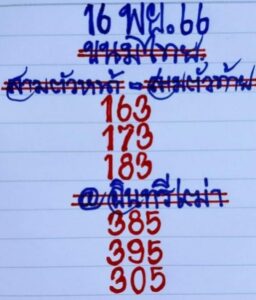 16 พย.66
ขุนมีโทย
สามตัวหน้า - สามตัวท้าย
163
173
183
@อินทรีเหม่า
385
395
305